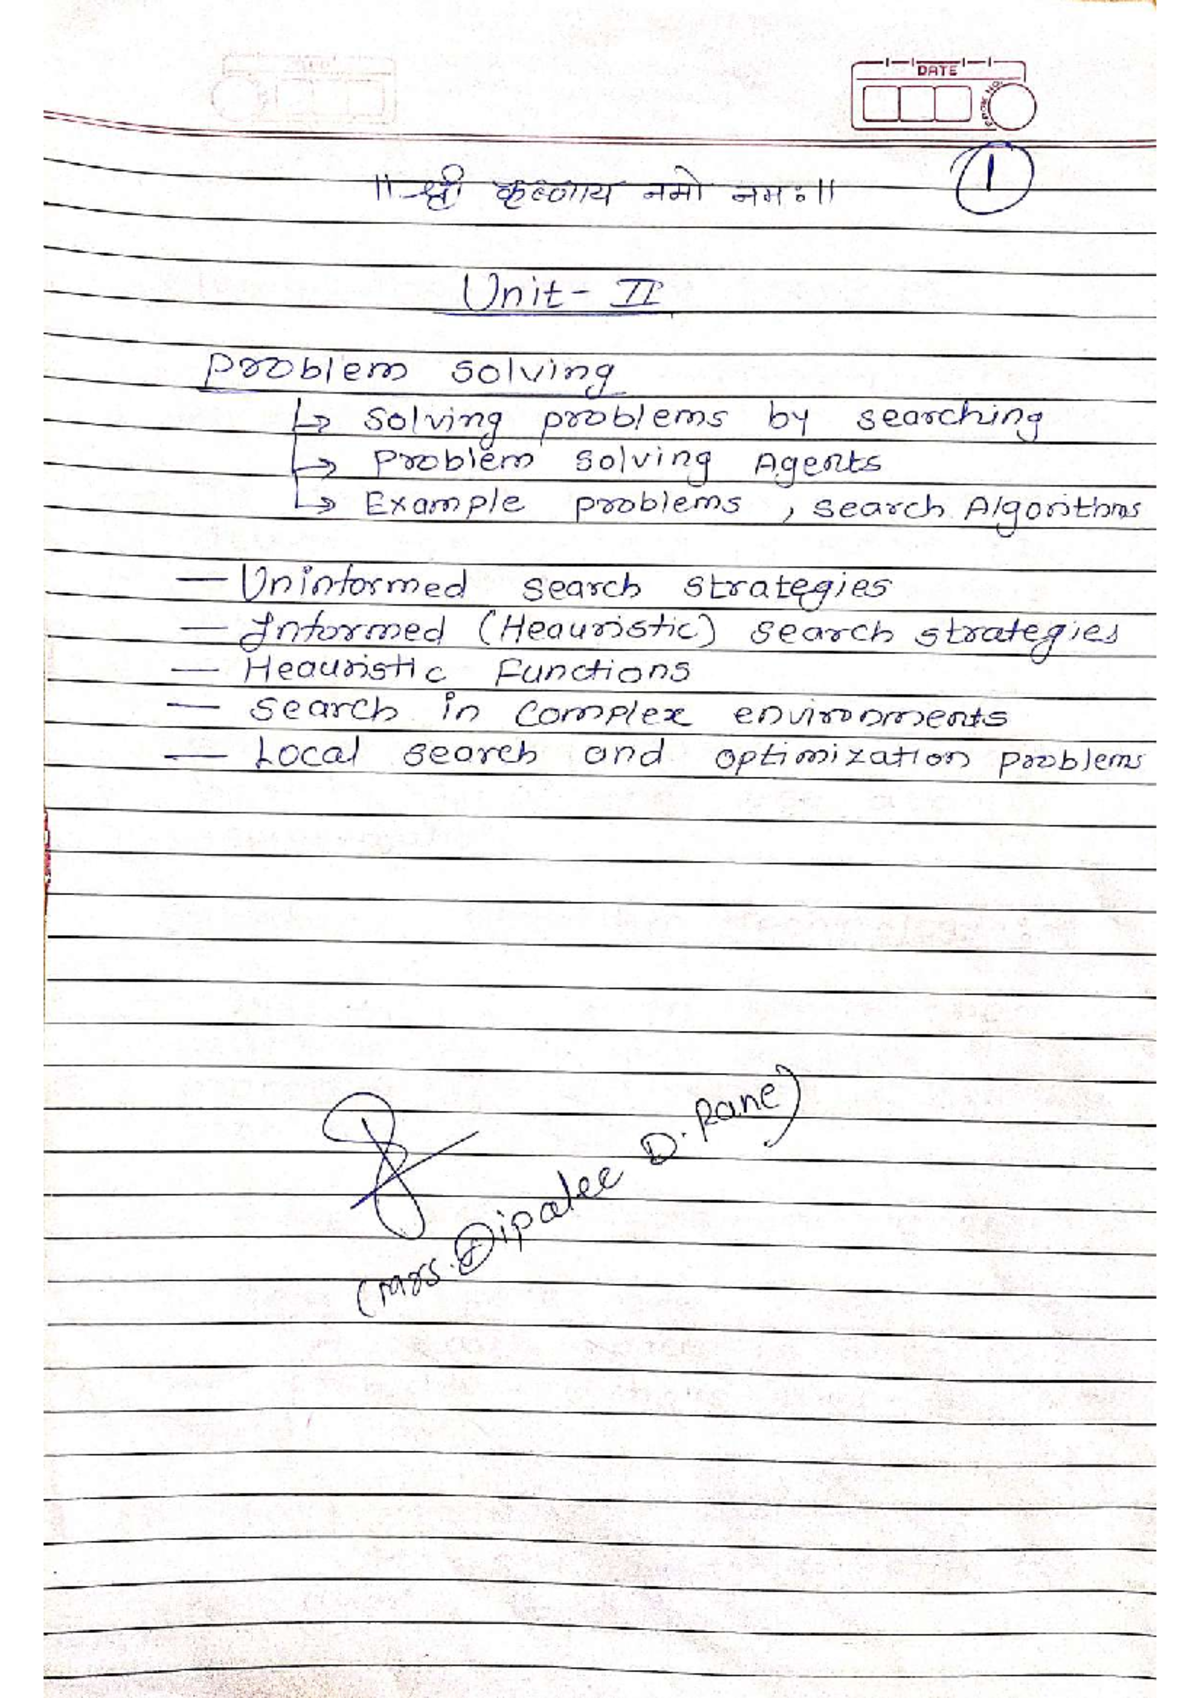 DATE
1
॥ श्री कृष्णाय नमो नमः॥
Unit - II
Problem solving
↳ solving problems by searching
↳ Problem solving Agents
↳ Example problems, search Algorithms
— Uninformed search strategies
— Informed (Heauristic) search strategies
— Heauristic Functions
— search in complex environments
— Local search and optimization problems
(Mrs. Dipalee D. Rane)